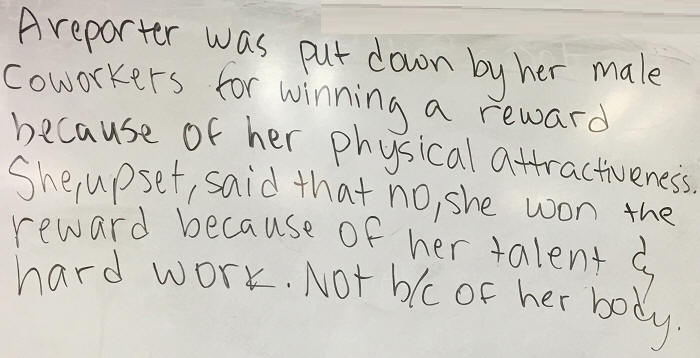 A reporter was put down by her male
Coworkers for winning a reward
because of her physical attractiveness.
She, upset, said that no, she won the
reward because of her talent &
hard work. Not b/c of her body.